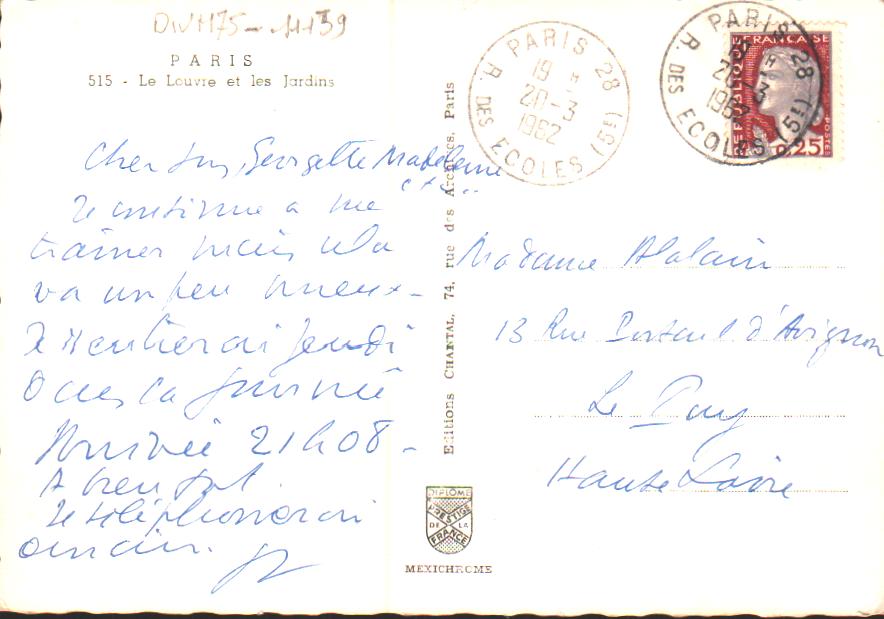 DIVH75-11139
PARIS
515 - Le Louvre et les Jardins
Georgette Madeleine
Je continue a me
trainer mais cela
va un peu mieux -
Je rentrerai Jeudi
Dans la journée
Arrivée 21h08 -
A bientot.
Je téléphonerai
demain.
Editions CHANTAL, 74, rue des Archives, Paris
DIPLOME
PRESTIGE
DE LA
FRANCE
MEXICHROME
PARIS 28
R. DES ECOLES (5E)
19 H
20-3
1962
PARIS 28
R. DES ECOLES (5E)
20-3
1962
REPUBLIQUE FRANCAISE
POSTES
0,25
Madame
13 Rue d'Avignon
Le Puy
Haute Loire